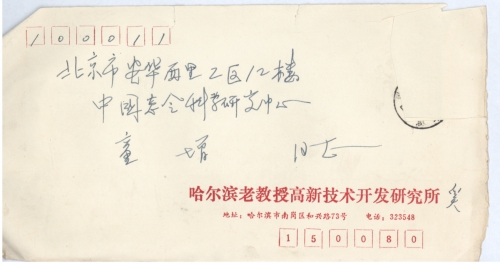 100011
北京市安华西里2区12楼
中国老令科学研究中心
童增 同志
哈尔滨老教授高新技术开发研究所
地址:哈尔滨市南岗区和兴路73号 电话:323548
150080